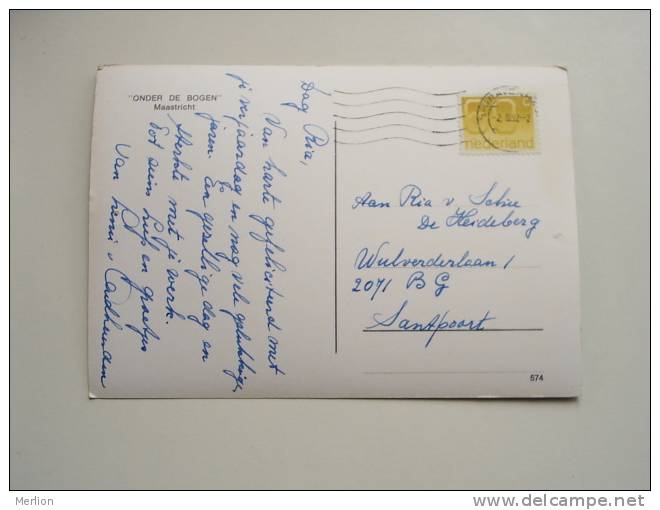 "ONDER DE BOGEN"
Maastricht
Dag Ria,
Van harte gefeliciteerd met
je verjaardag en nog vele gelukkige
jaren. En gezellige dag en
sterkte met je werk.
Tot ziens liefs en groetjes
van
nederland
Aan Ria v.
De Heideberg
Wulverderlaan 1
2071 BG
Santpoort
574
Merlion
www.delcampe.net